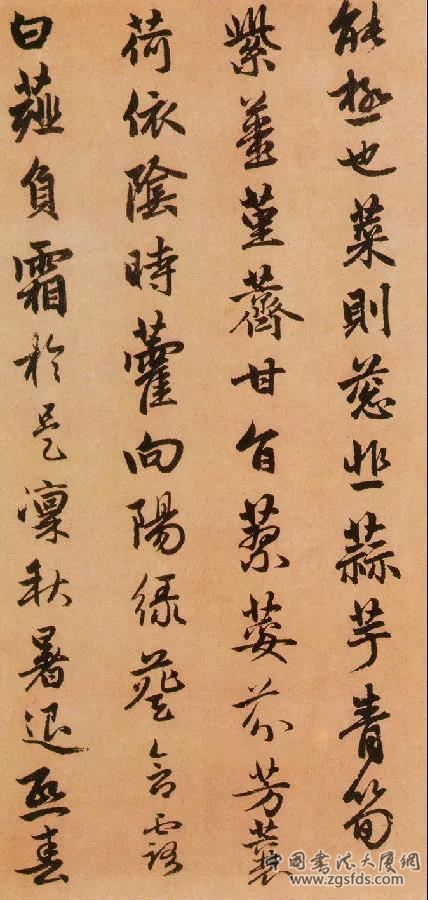 能極也菜則葱韭蒜芋青筍
紫薑堇薺甘旨蓼荽芬芳蘘
荷依陰時藿向陽緑葵含露
白薤負霜於是凜秋暑退熙春
中国书法大厦網
www.zgsfds.com